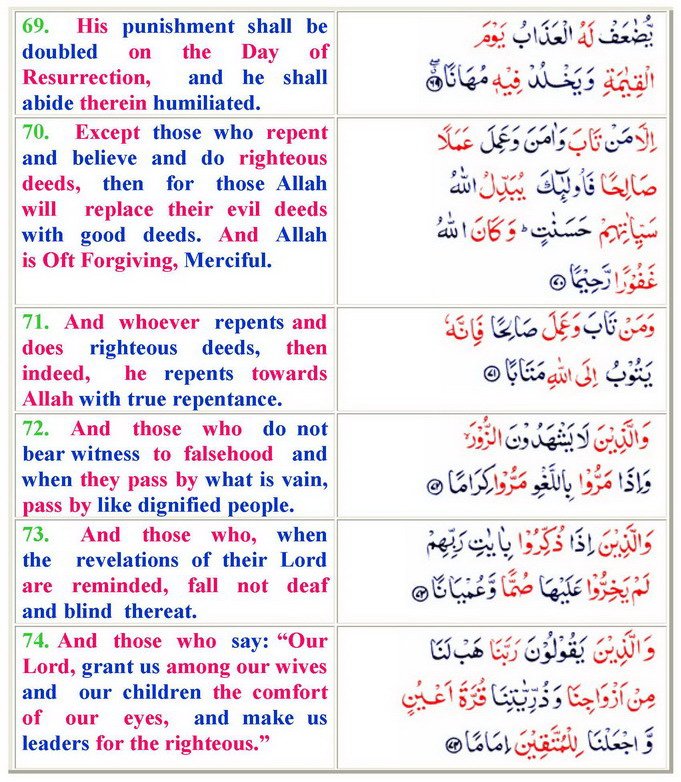 69. His punishment shall be
doubled on the Day of
Resurrection, and he shall
abide therein humiliated.
يُّضٰعَفْ لَهُ الْعَذَابُ يَوْمَ
الْقِيٰمَةِ وَيَخْلُدْ فِيْهٖ مُهَانًا ﴿۶۹﴾
70. Except those who repent
and believe and do righteous
deeds, then for those Allah
will replace their evil deeds
with good deeds. And Allah
is Oft Forgiving, Merciful.
اِلَّا مَنْ تَابَ وَاٰمَنَ وَعَمِلَ عَمَلًا
صَالِحًا فَاُولٰٓئِكَ يُبَدِّلُ اللهُ
سَيِّاٰتِهِمْ حَسَنٰتٍ ؕ وَكَانَ اللهُ
غَفُوْرًا رَّحِيْمًا ﴿۷۰﴾
71. And whoever repents and
does righteous deeds, then
indeed, he repents towards
Allah with true repentance.
وَمَنْ تَابَ وَعَمِلَ صَالِحًا فَاِنَّهٗ
يَتُوْبُ اِلَى اللهِ مَتَابًا ﴿۷۱﴾
72. And those who do not
bear witness to falsehood and
when they pass by what is vain,
pass by like dignified people.
وَالَّذِيْنَ لَا يَشْهَدُوْنَ الزُّوْرَ ۙ
وَاِذَا مَرُّوْا بِاللَّغْوِ مَرُّوْا كِرَامًا ﴿۷۲﴾
73. And those who, when
the revelations of their Lord
are reminded, fall not deaf
and blind thereat.
وَالَّذِيْنَ اِذَا ذُكِّرُوْا بِاٰيٰتِ رَبِّهِمْ
لَمْ يَخِرُّوْا عَلَيْهَا صُمًّا وَّعُمْيَانًا ﴿۷۳﴾
74. And those who say: “Our
Lord, grant us among our wives
and our children the comfort
of our eyes, and make us
leaders for the righteous.”
وَالَّذِيْنَ يَقُوْلُوْنَ رَبَّنَا هَبْ لَنَا
مِنْ اَزْوَاجِنَا وَذُرِّيّٰتِنَا قُرَّةَ اَعْيُنٍ
وَّاجْعَلْنَا لِلْمُتَّقِيْنَ اِمَامًا ﴿۷۴﴾